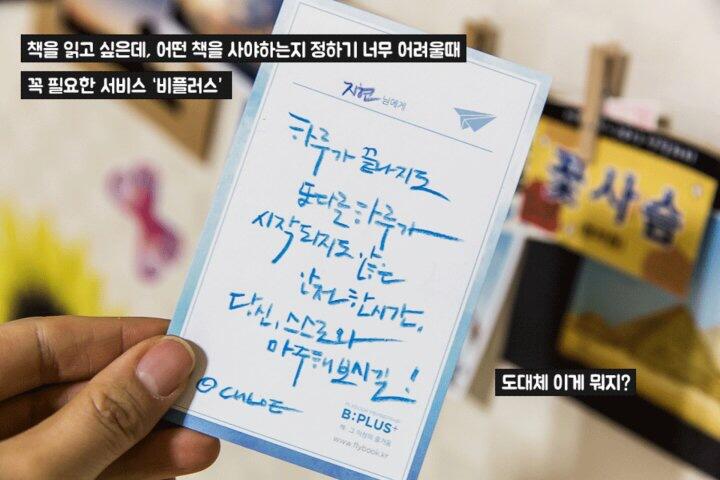 책을 읽고 싶은데, 어떤 책을 사야하는지 정하기 너무 어려울때
꼭 필요한 서비스 ‘비플러스’
지현 님에게
하루가 끝나지도
또다른 하루가
시작되지도 않은
안전한 시간,
당신, 스스로와
마주해보시길!
CHLOE
B:PLUS+
책, 그 이상의 즐거움
www.flybook.kr
꽃사슴
도대체 이게 뭐지?